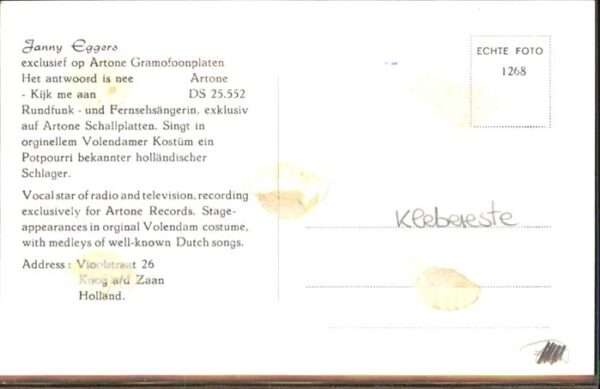 Janny Eggers
exclusief op Artone Gramofoonplaten
Het antwoord is nee Artone
- Kijk me aan DS 25.552
Rundfunk - und Fernsehsängerin, exklusiv
auf Artone Schallplatten. Singt in
orginellem Volendamer Kostüm ein
Potpourri bekannter holländischer
Schlager.
Vocal star of radio and television, recording
exclusively for Artone Records. Stage-
appearances in orginal Volendam costume,
with medleys of well-known Dutch songs.
Address : Vioolstraat 26
Koog a/d Zaan
Holland.
ECHTE FOTO
1268
Klebereste